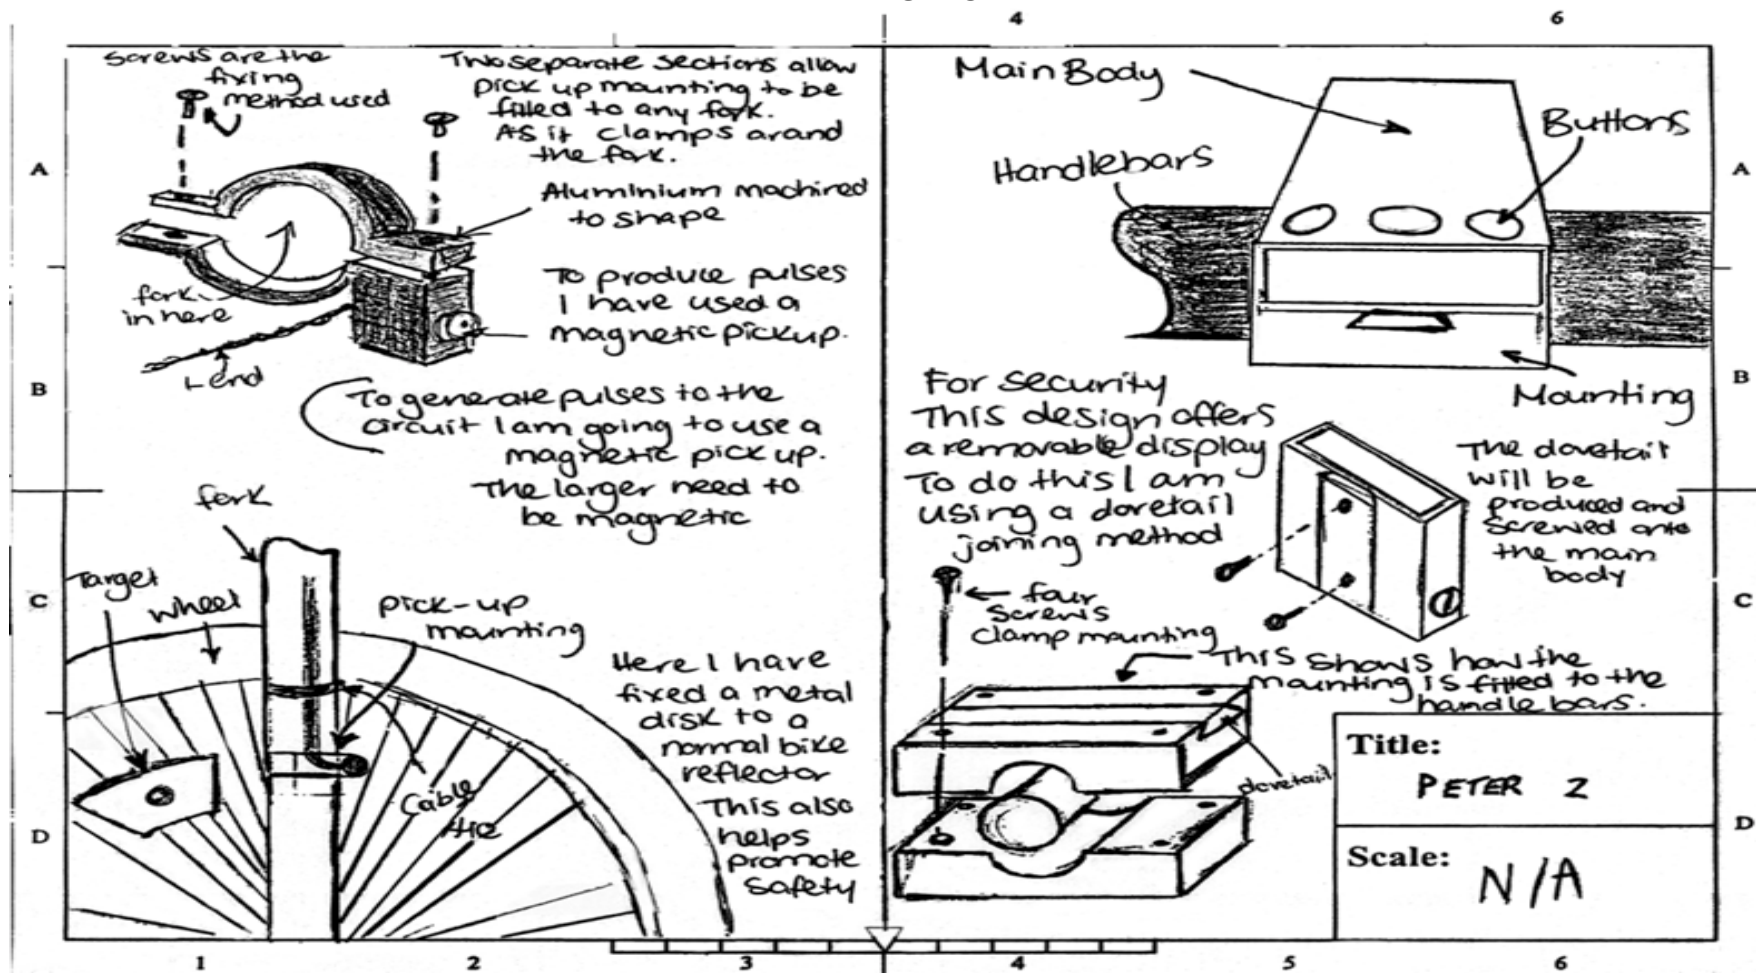 4
6
Screws are the
fixing
method used
Two separate sections allow
pick up mounting to be
fitted to any fork.
As it clamps around
the fork.
A
Aluminium machined
to shape
fork
in here
To produce pulses
I have used a
magnetic pickup.
B
To generate pulses to the
circuit I am going to use a
magnetic pick up.
The larger need to
be magnetic
fork
Target
wheel
C
pick-up
mounting
Here I have
fixed a metal
disk to a
normal bike
reflector
This also
helps
promote
safety
Cable
tie
D
1
2
3
Main Body
Buttons
Handlebars
A
B
Mounting
For security
This design offers
a removable display
To do this I am
using a dovetail
joining method
The dovetail
will be
produced and
screwed onto
the main
body
C
four
screws
clamp mounting
This shows how the
mounting is fitted to the
handle bars.
dovetail
Title:
PETER 2
D
Scale:
N/A
4
5
6